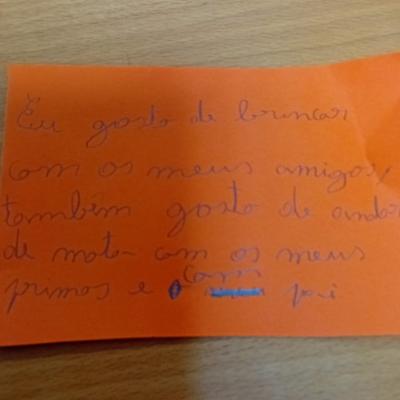 Eu gosto de brincar
com os meus amigos,
também gosto de andar
de mota com os meus
primos e o pai